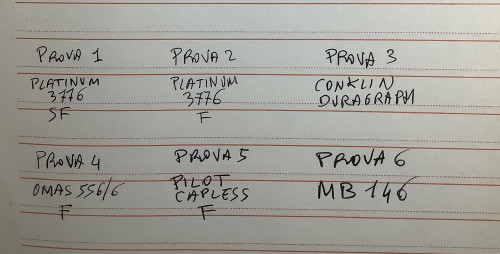 PROVA 1 PROVA 2 PROVA 3
PLATINUM PLATINUM CONKLIN
3776 3776 DURAGRAPH
SF F
PROVA 4 PROVA 5 PROVA 6
OMAS 556/6 PILOT CAPLESS MB 146
F F